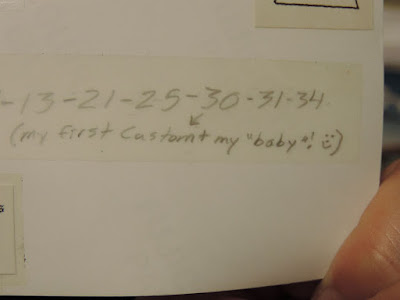 -13-21-25-30-31-34
(my first Custom + my "baby"! :))
s